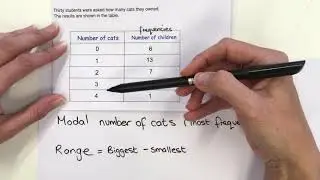 Thirty students were asked how many cats they owned.
The results are shown in the table.
frequencies
Number of cats Number of children
0 6
1 13
2 7
3
4 1
Modal number of cats (most freque
Range = Biggest - smallest